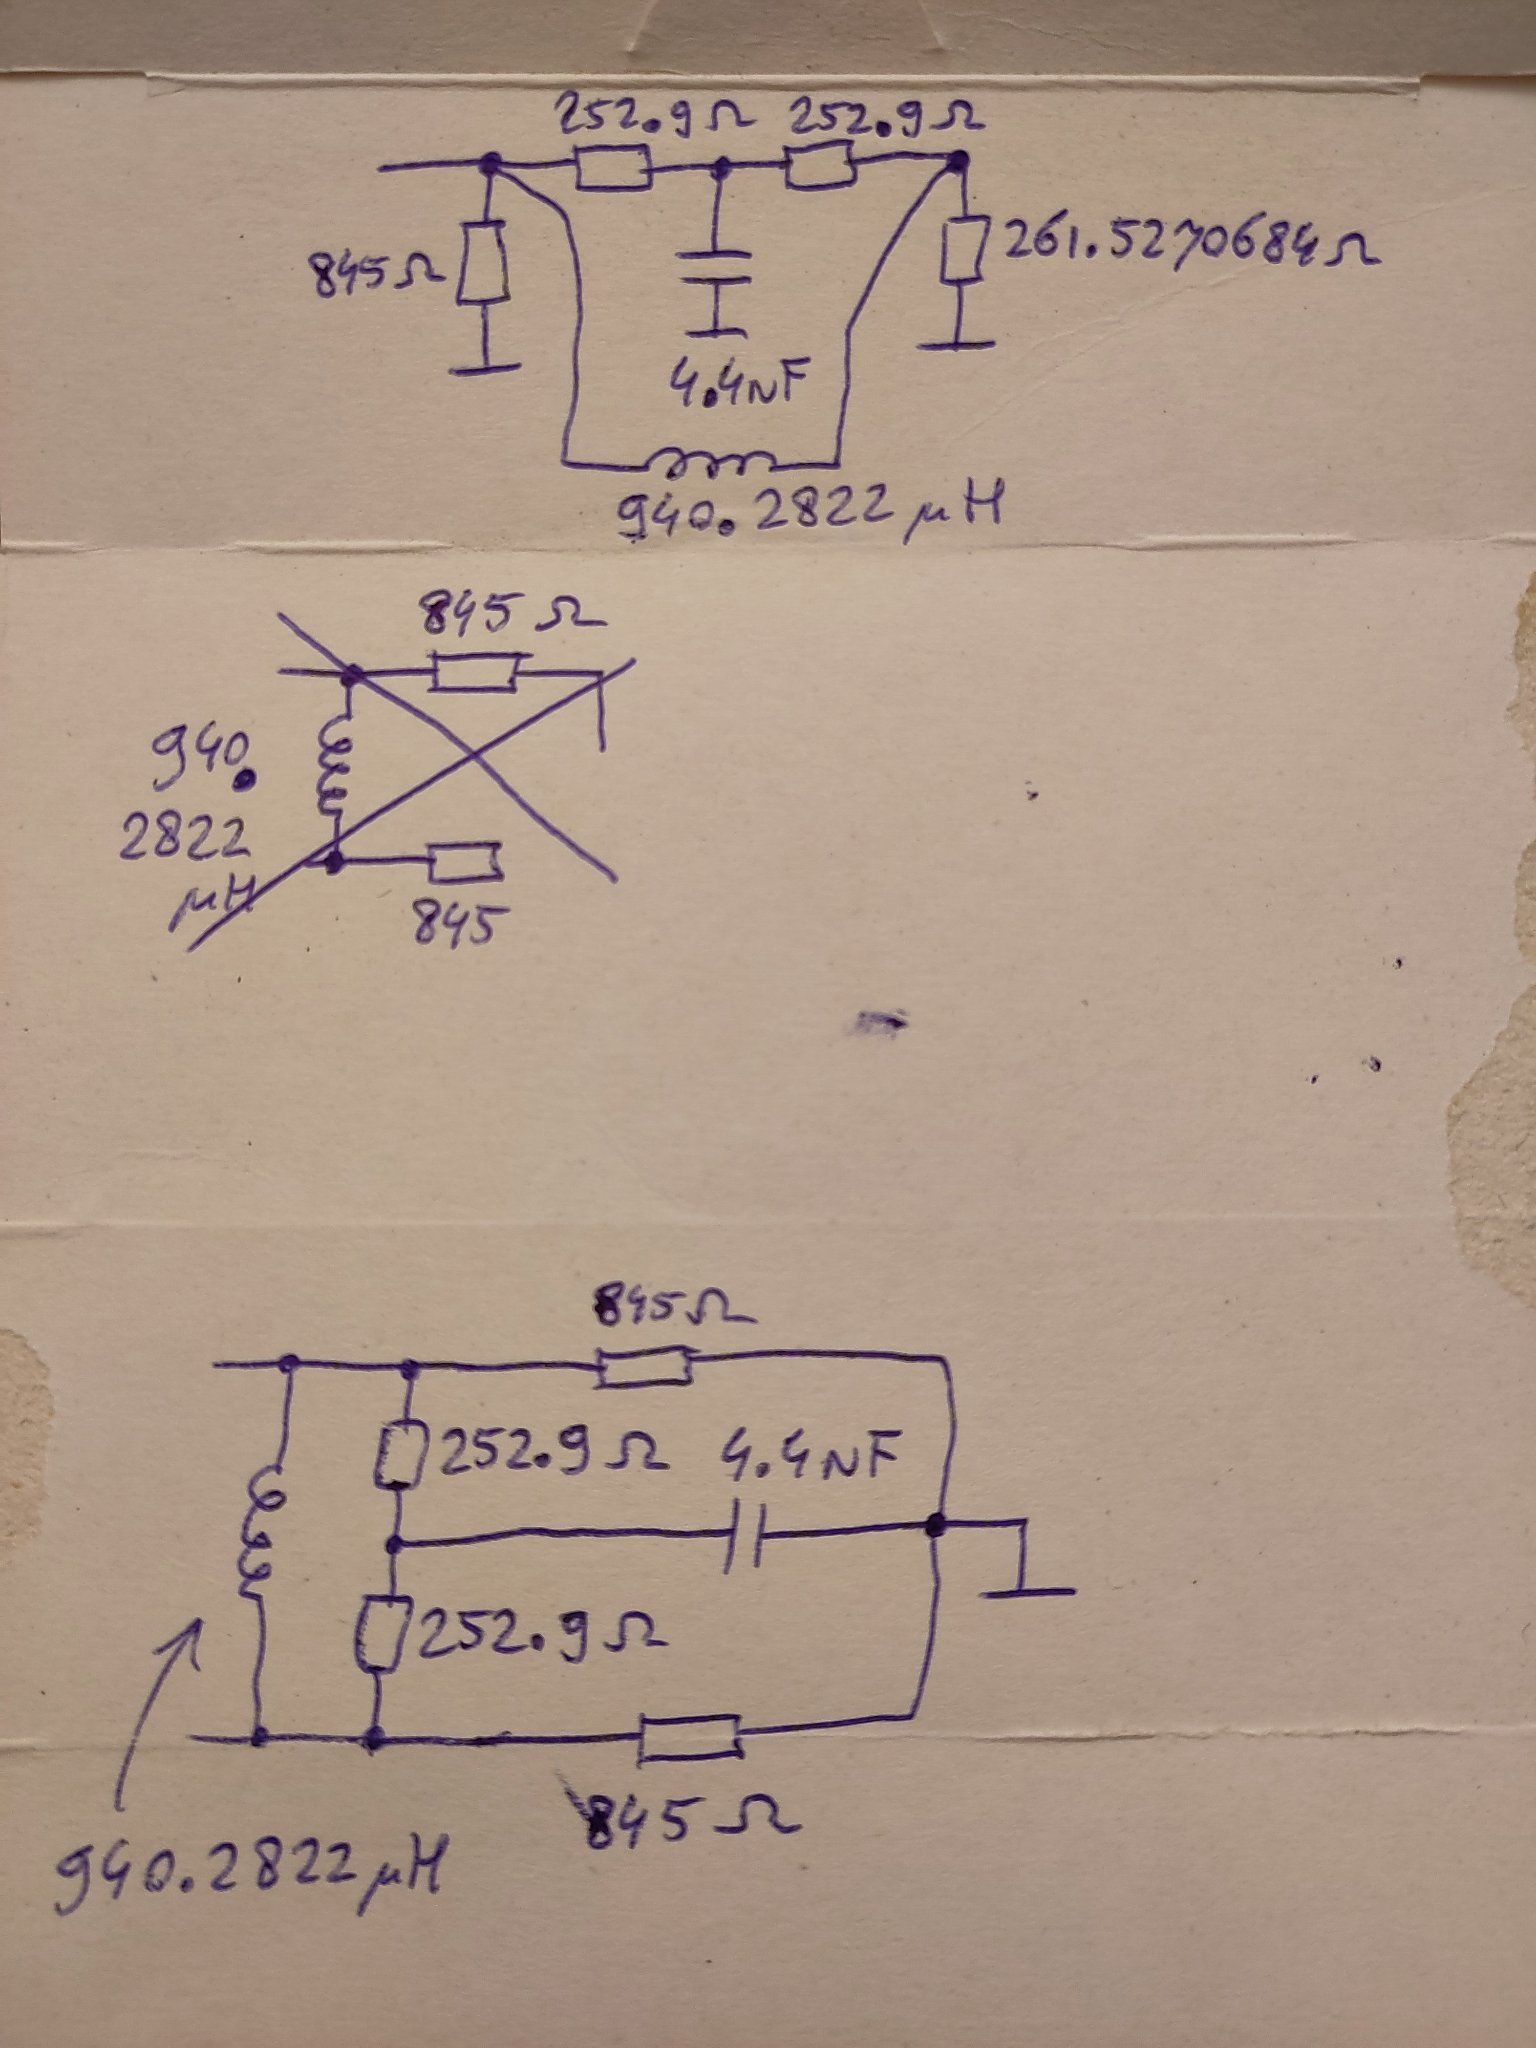 252.9Ω 252.9Ω
845Ω
261.5270684Ω
4.4NF
940.2822 μH
845 Ω
940.
2822
μH
845
845Ω
252.9 Ω
4.4NF
252.9 Ω
845 Ω
940.2822 μH